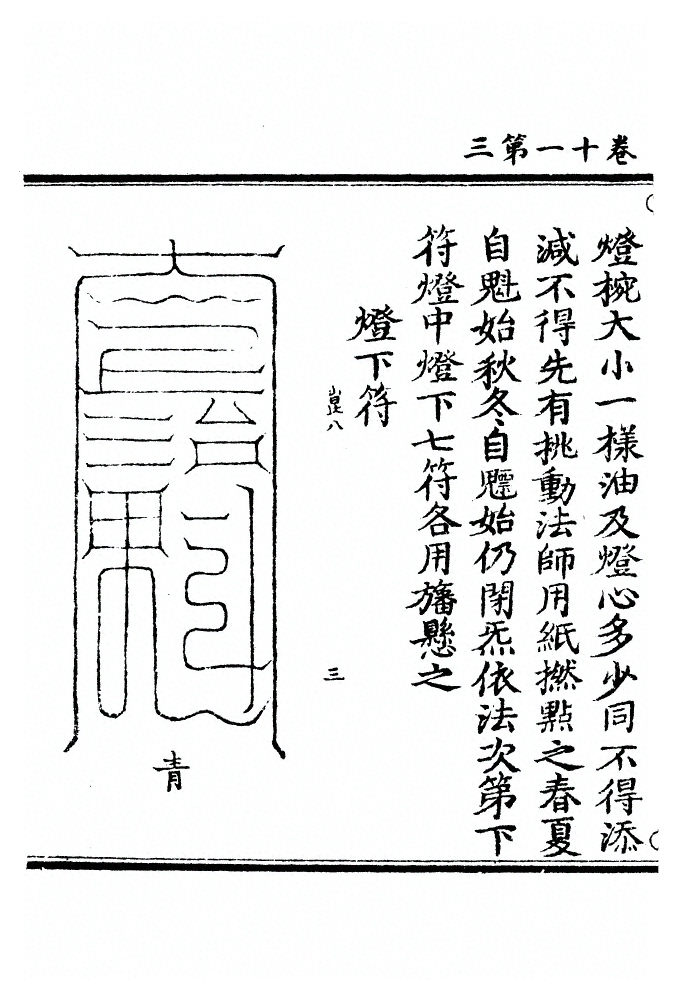 卷十一第三
燈椀大小一樣油及燈心多少同不得添
減不得先有挑動法師用紙撚點之春夏
自魁始秋冬自䰢始仍閉炁依法次第下
符燈中燈下七符各用旛懸之
燈下符
崑八
三
青